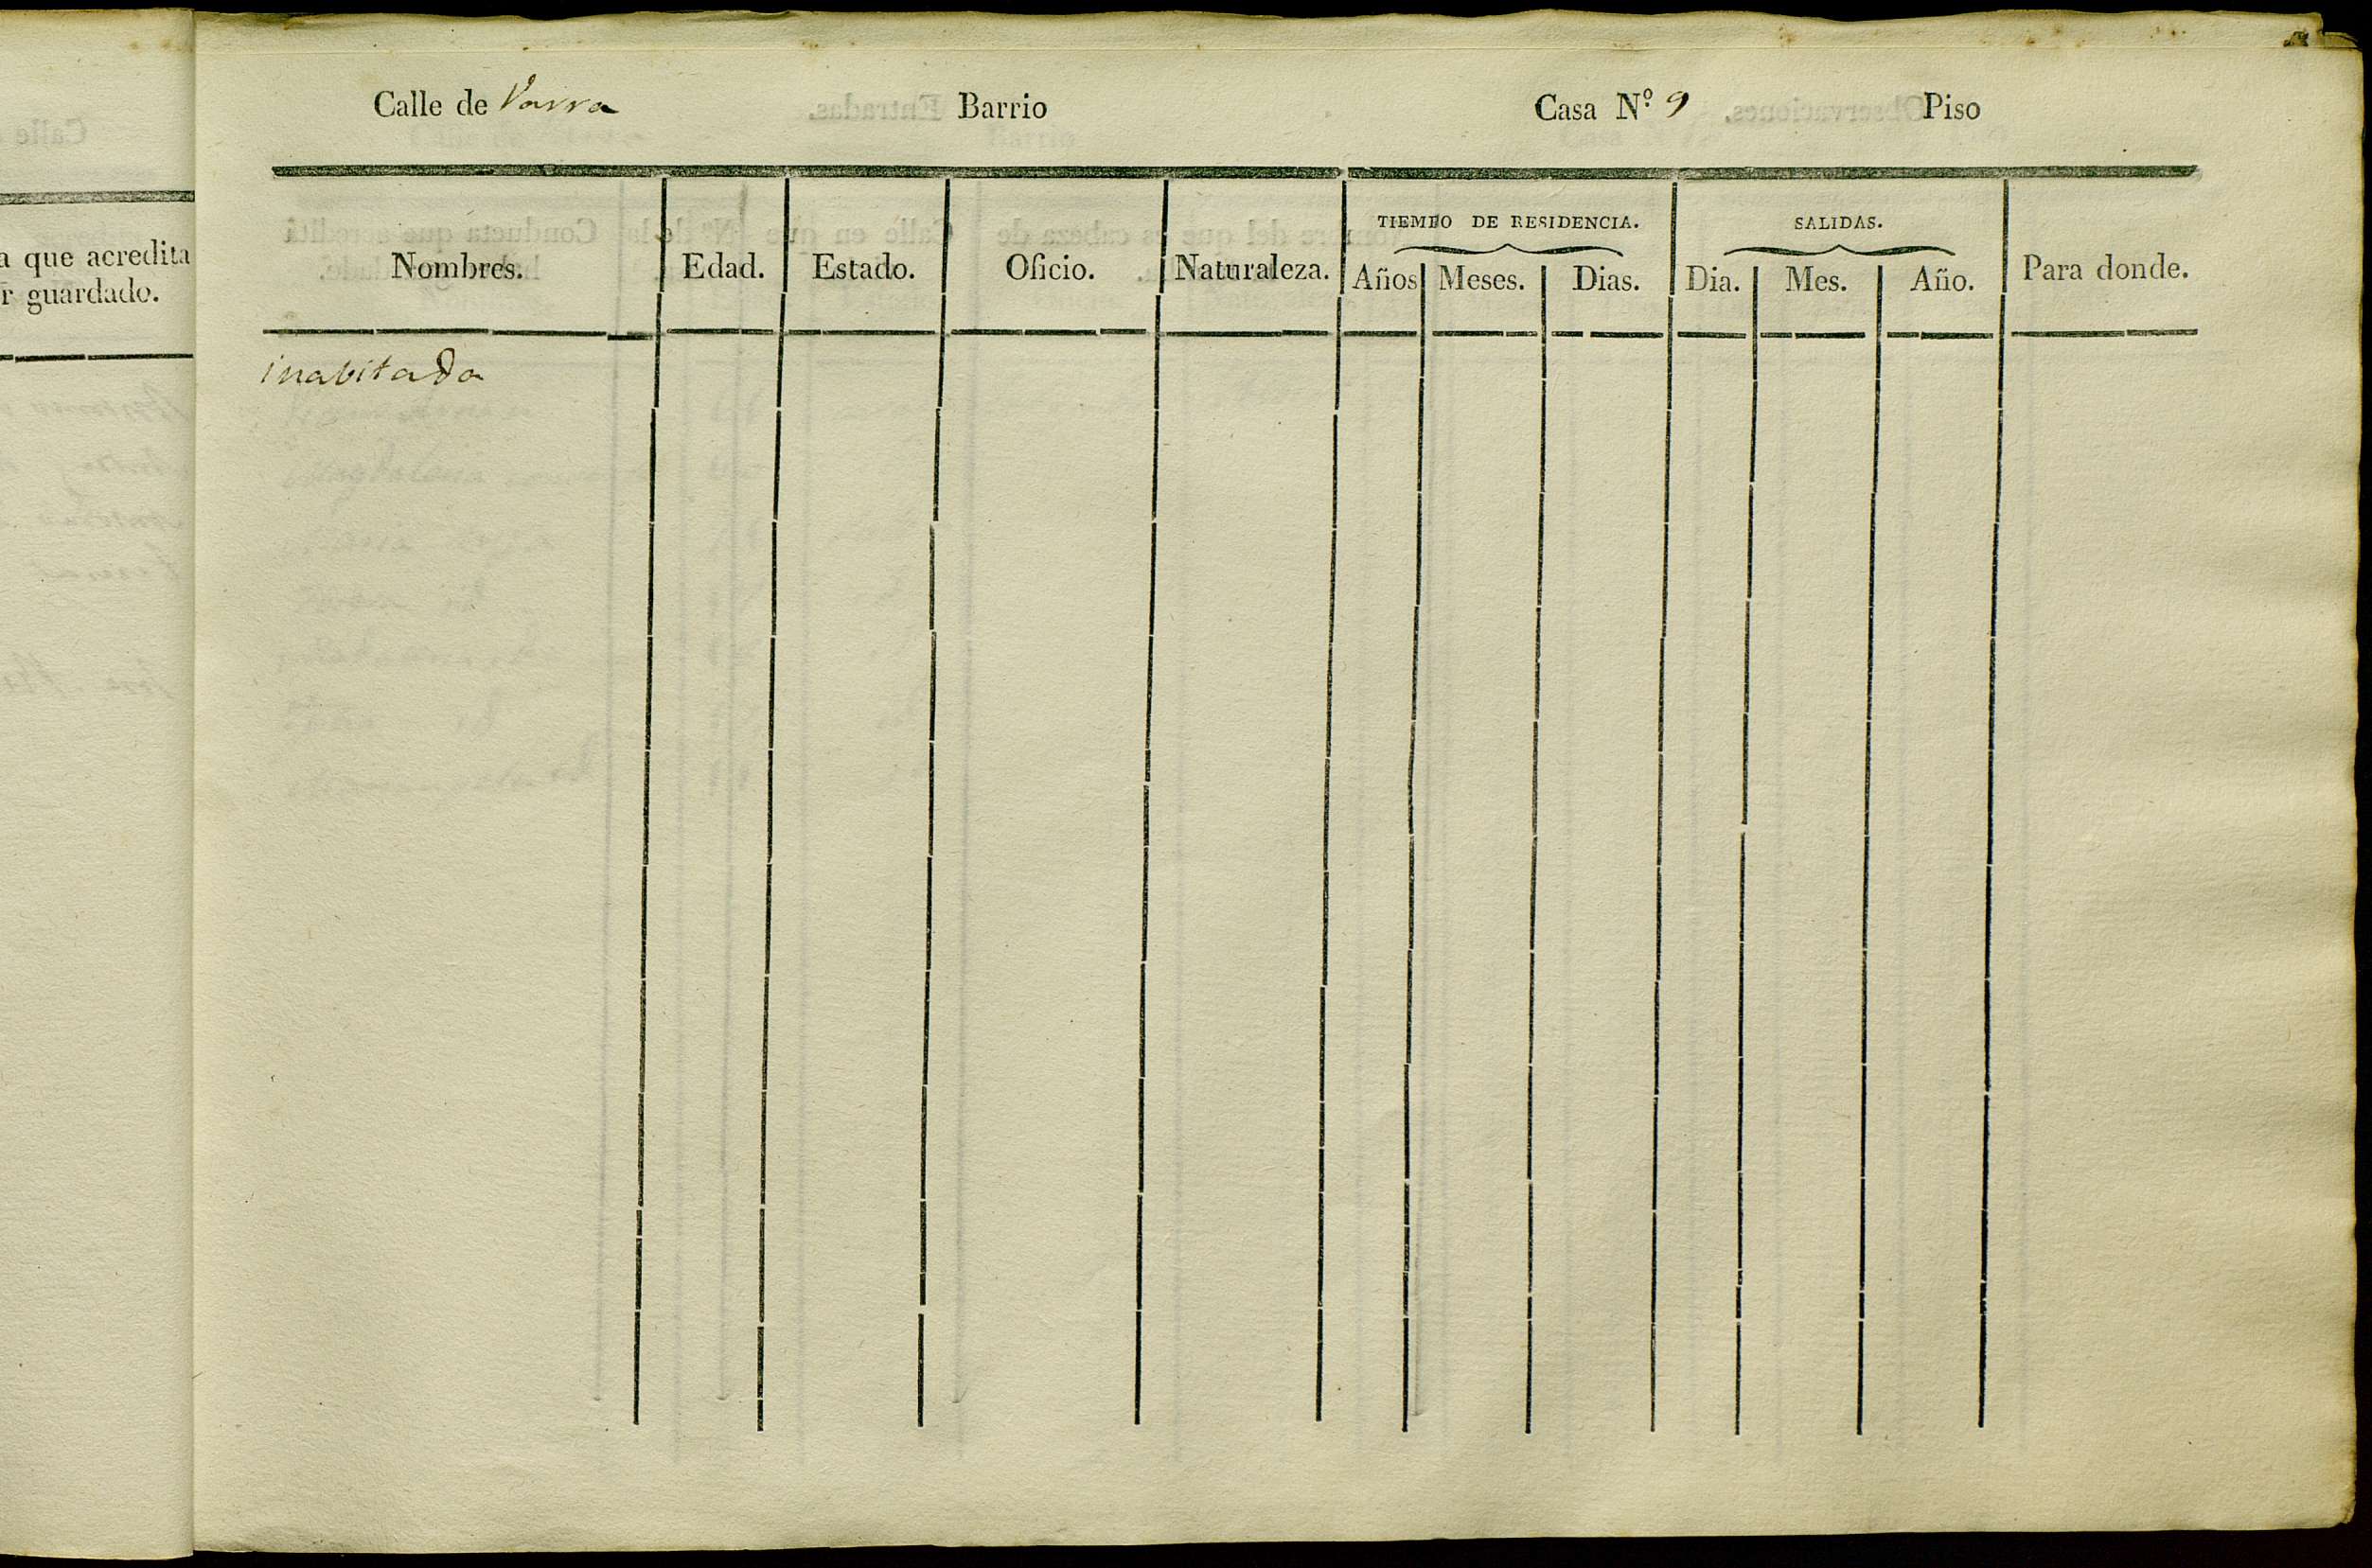 Calle de Varra Barrio Casa N.º 9 Piso
a que acredita
r guardado.
TIEMPO DE RESIDENCIA. SALIDAS.
Nombres. Edad. Estado. Oficio. Naturaleza. Años Meses. Dias. Dia. Mes. Año. Para donde.
inabitada